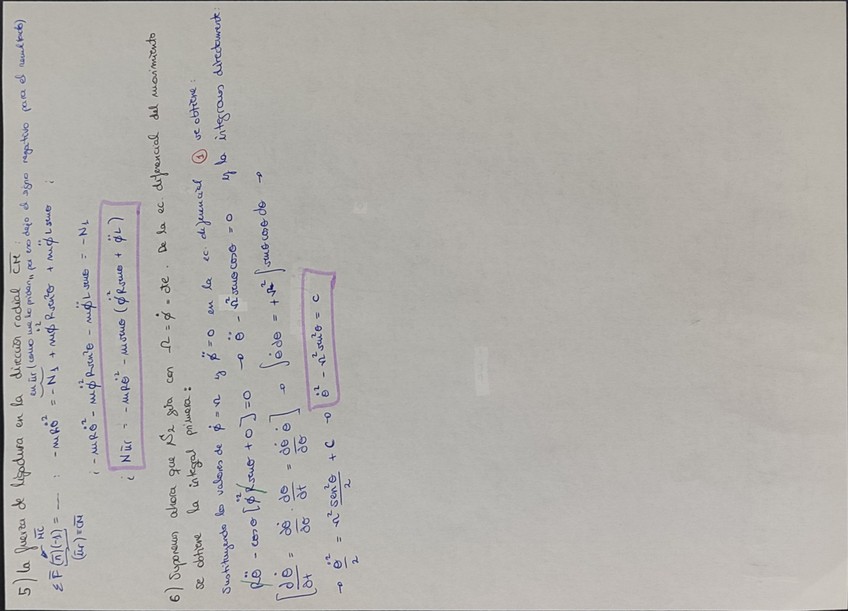 5) La fuerza de ligadura en la dirección radial C̅M̅ :
en ūr (como me lo piden, por eso dejo el signo negativo para el resultado)
ΣF̅ (n̅)(-1) = ___ : -mRθ̇² = -N₁ + mφ̇²Rsin²θ + mφ̈Lsinθ ;
M̅C̅
(ūr) = C̅M̅
; -mRθ̇² - mφ̇²Rsin²θ - mφ̈Lsinθ = -N₁
; N̅ūr = -mRθ̇² - msinθ (φ̇²Rsinθ + φ̈L)
6) Suponemos ahora que N₂ gira con Ω = φ̇ = cte. De la ec. diferencial del movimiento
se obtiene la integral primera:
Sustituyendo los valores de φ̇ = Ω y φ̈ = 0 en la ec. diferencial ① se obtiene:
Rθ̈ - cosθ [φ̇²Rsinθ + 0] = 0 → θ̈ - Ω²sinθcosθ = 0 y la integramos directamente:
[dθ̇/dt = dθ̇/dθ · dθ/dt = dθ̇/dθ θ̇] → ∫θ̇dθ̇ = +Ω² ∫sinθcosθdθ →
→ θ̇²/2 = Ω² sen²θ/2 + C → θ̇² - Ω²sin²θ = C